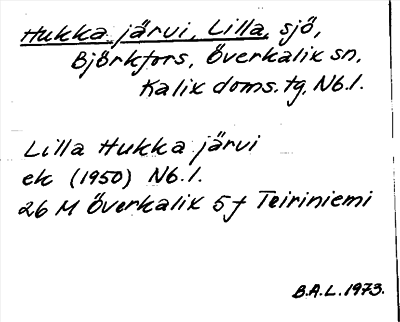 Hukka järvi, Lilla, sjö,
Björkfors, Överkalix sn,
Kalix doms.tg, Nb.l.
Lilla Hukka järvi
ek (1950) Nb.l.
26 M Överkalix 5 f Teiriniemi
B.A.L. 1973.